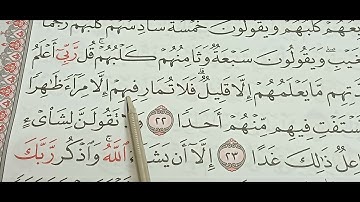 يعهم كلبهم ويقولون خمسة سادسهم كلبهم رجما
غيب ۖ ويقولون سبعة وثامنهم كلبهم ۚ قل ربي أعلم
دتهم ما يعلمهم إلا قليل ۗ فلا تمار فيهم إلا مراء ظهرا
ستفت فيهم منهم أحدا ٢٢ ولا تقولن لشاىء
اعل ذلك غدا ٢٣ إلا أن يشاء الله ۚ واذكر ربك